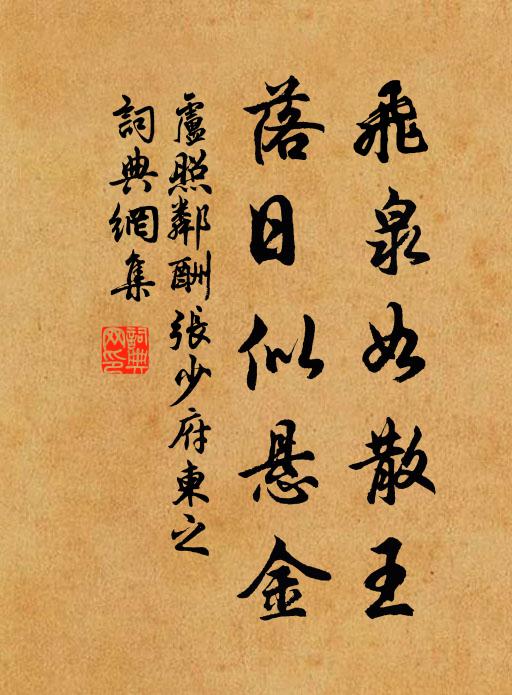 飛泉如散王
落日似悬金
盧照鄰酬張少府東之
詞典網集
詞典
网印